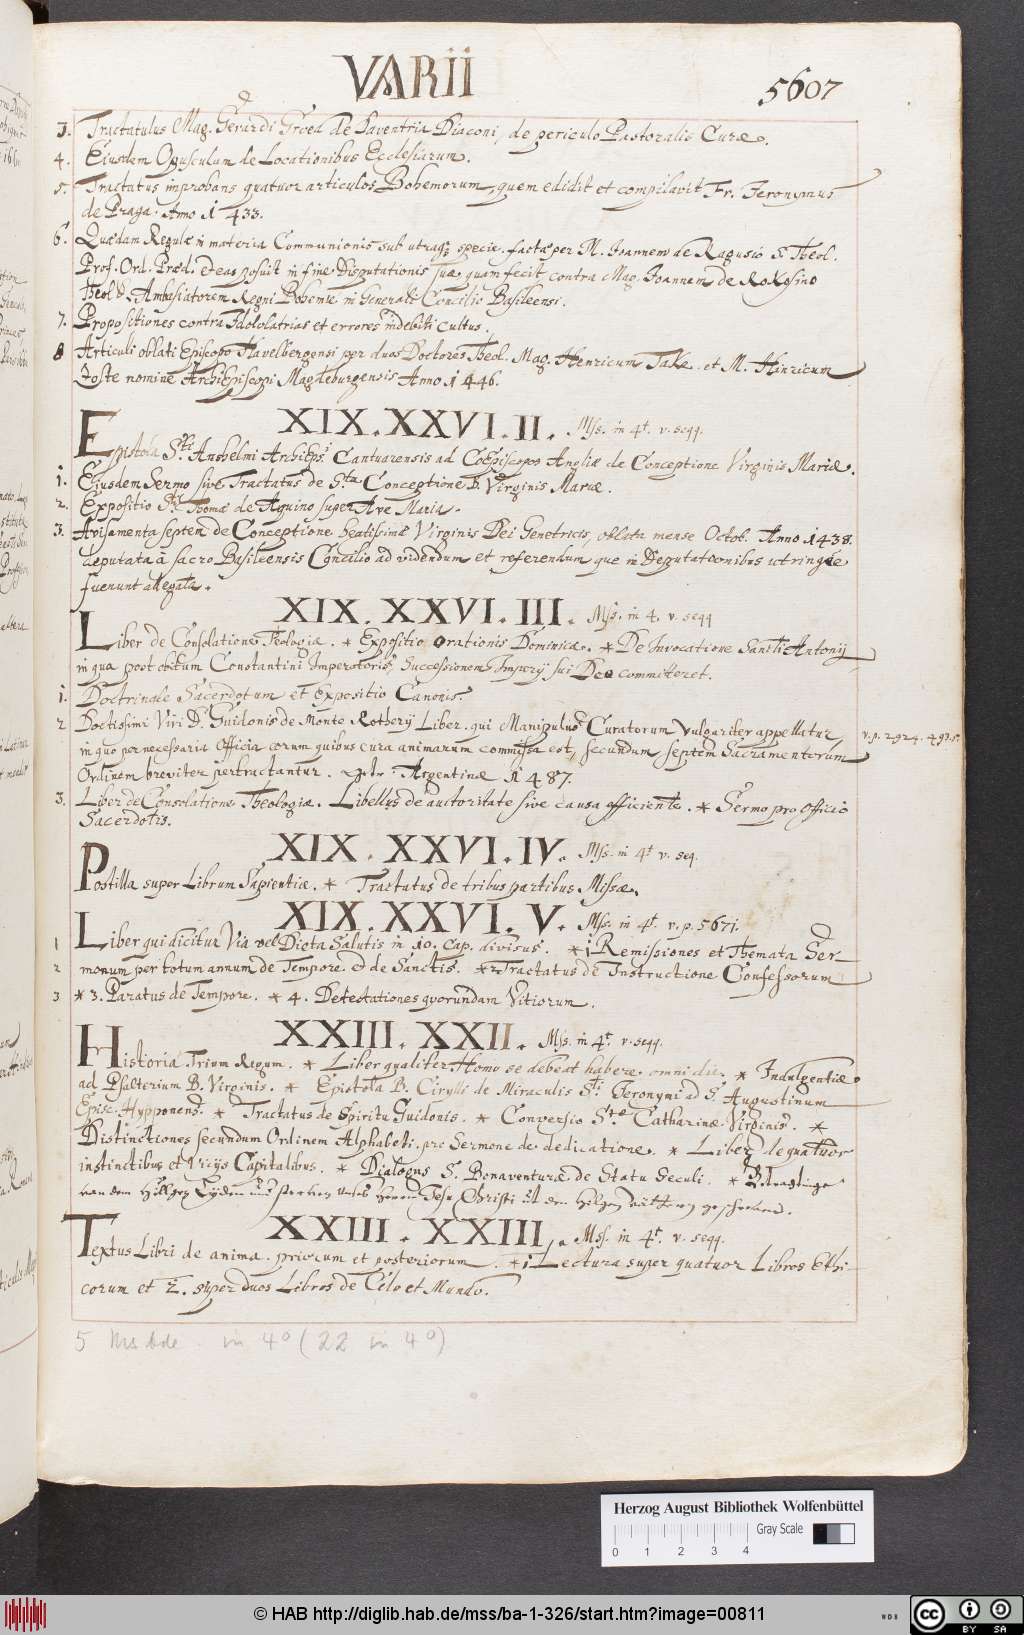 VARII
5607
3. Tractatulus Mag. Gerardi Groed de Daventria Diaconi, de periculo Pastoralis Curæ.
4. Eiusdem Opusculum de Locationibus Ecclesiarum.
5. Tractatus improbans quatuor articulos Bohemorum, quem edidit et compilavit Fr. Jeronymus
de Praga. Anno 1433.
6. Quædam Regulæ in materia Communionis sub utraq; specie. factæ per M. Joannem de Ragusio S. Theol.
Prof. Ord. Præd. et eas posuit in fine Disputationis suæ quam fecit contra Mag. Joannem de Rokosino
Theol. Ambasiatorem Regni Bohemiæ in Generali Concilio Basileensi.
7. Propositiones contra Idololatrias et errores indebiti cultus.
8 Articuli oblati Episcopo Havelbergensi per duos Doctores Theol. Mag. Henricum Take et M. Hinricum
Zoste nomine ArchiEpiscopi Magdeburgensis Anno 1446.
XIX. XXVI. II. Mss. in 4t. v. seqq.
Epistola Sti. Anshelmi ArchiEpi Cantuarensis ad CoEpiscopos Angliæ de Conceptione Virginis Mariæ.
1. Eiusdem Sermo sive Tractatus de Sta Conceptione B. Virginis Mariæ.
2. Expositio Sti Thomæ de Aquino super Ave Maria.
3. Avisamenta septem de Conceptione beatissimæ Virginis Dei Genetricis, oblata mense Octob. Anno 1438.
deputata à sacro Basileensis Concilio ad videndum et referendum que in Deputationibus utringue
fuerunt allegata.
XIX. XXVI. III. Mss. in 4. v. seqq
Liber de Consolatione Teologiæ. * Expositio orationis Dominicæ. * De Invocatione Sancti Antonij
in qua post obitum Constantini Imperatoris, Successionem Imperij sui Deo committeret.
1. Doctrinale Sacerdotum et Expositio Canonis.
2 Doctissimi Viri D. Guidonis de Monte Rotherij Liber. qui Manipulus Curatorum vulgariter appellatur
v. p. 2924. 4975.
in quo pernecessaria Officia eorum quibus cura animarum commissa est, secundum septem Sacramentorum
Ordinem breviter pertractantur. Argentinæ 1487.
3. Liber de Consolatione Theologiæ. Libellus de autoritate sive causa efficiente. * Sermo pro Officio
Sacerdotis.
XIX. XXVI. IV. Mss. in 4t v. seq.
Postilla super Librum Sapientiæ. * Tractatus de tribus partibus Missæ.
XIX. XXVI. V. Mss. in 4t. v. p. 5671.
1 Liber qui dicitur Via vel Dieta Salutis in 10. Cap. divisus. * 1 Remissiones et Themata Ser-
2 monum per totum annum de Tempore et de Sanctis. * 2 Tractatus de Instructione Confessorum
3 * 3. Paratus de Tempore. * 4. Detestationes quorundam Vitiorum.
XXIII. XXII. Mss. in 4t. v. seqq.
Historia Trium Regum. * Liber qualiter Homo se debeat habere omni die. * Indulgentiæ
ad Psalterium B. Virginis. * Epistola B. Cirylli de Miraculis Sti Jeronymi ad S. Augustinum
Episc. Hypponens. * Tractatus de Spiritu Guidonis. * Conversio Stæ Catharinæ Virginis. *
Distinctiones secundum Ordinem Alphabeti. pro Sermone de dedicatione. * Liber de quatuor
instinctibus et Vicijs Capitalibus. * Dialogus S. Bonaventuræ de Statu Seculi. * Betrachtinge
van dem Hilligen Lyden unses Heren Jesu Christi
XXIII. XXIII. Mss. in 4t. v. seqq.
Textus Libri de anima. priorum et posteriorum. * 1 Lectura super quatuor Libros Ethi-
corum et 2. super duos Libros de Celo et Mundo.
5 Ms Bde. in 4° (22 in 4°)
Herzog August Bibliothek Wolfenbüttel
Gray Scale
0 1 2 3 4
© HAB http://diglib.hab.de/mss/ba-1-326/start.htm?image=00811
WDB
cc BY SA